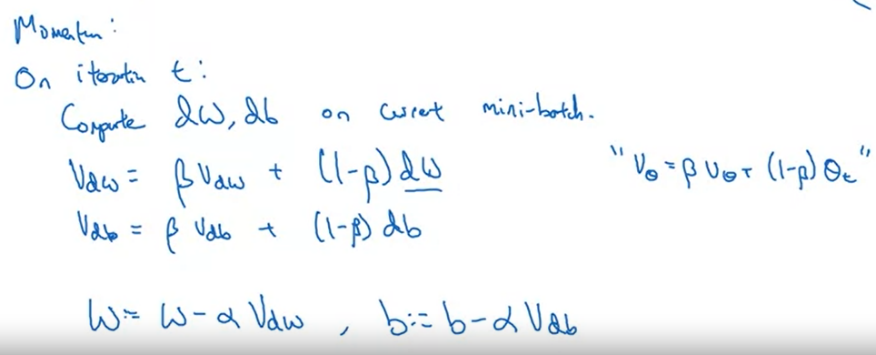 Momentum:
On iteration t:
Compute dW, db on current mini-batch.
Vdw = βVdw + (1-β)dW
"Vθ = βVθ + (1-β)θt"
Vdb = βVdb + (1-β)db
W := W - αVdw, b := b - αVdb